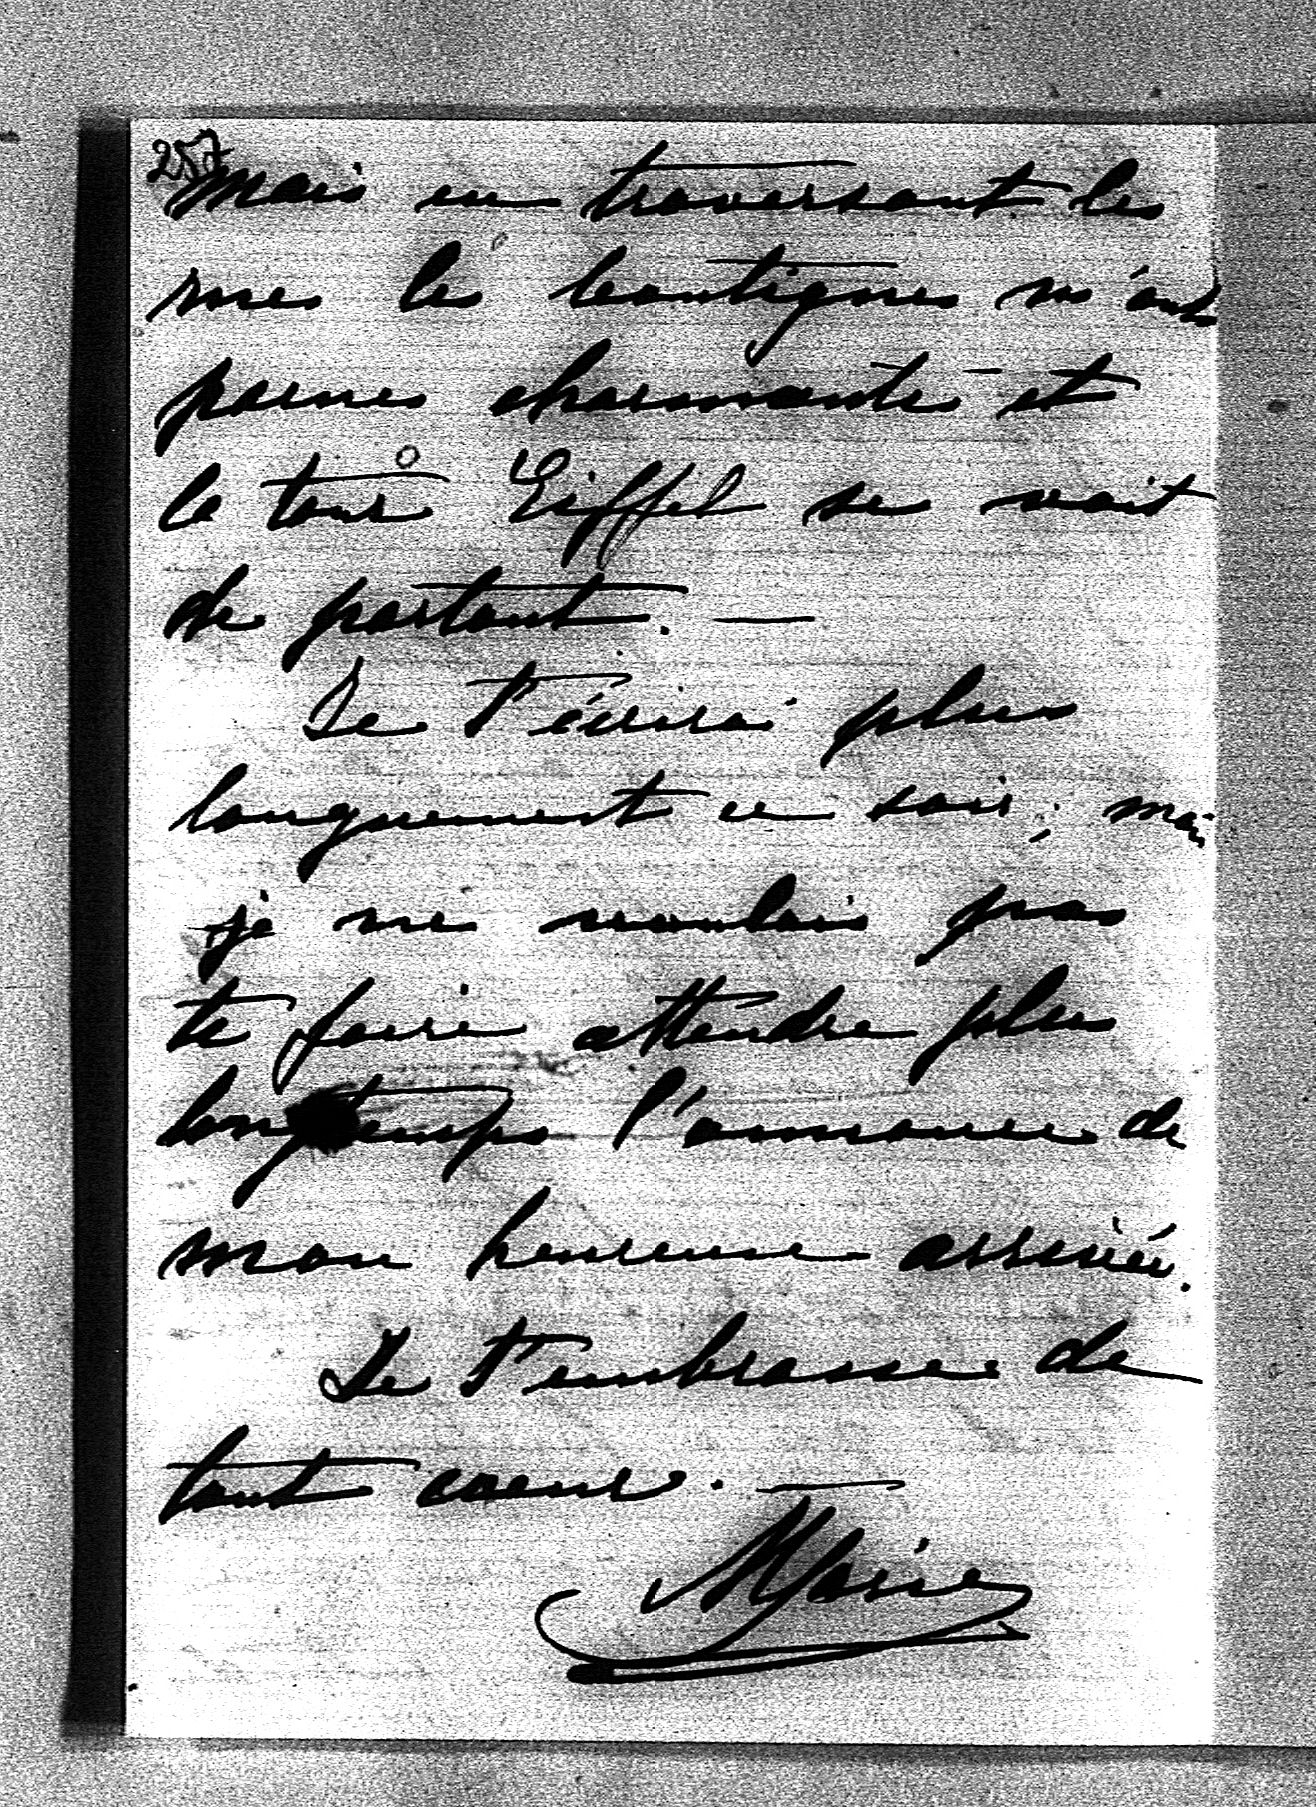 257
mais en traversant les
rues les boutiques m'ont
parues charmantes et
la tour Eiffel se voit
de partout. —
Je t'écrirai plus
longuement ce soir; mais
je ne voulais pas
te faire attendre plus
longtemps l'annonce de
mon heureuse arrivée.
Je t'embrasse de
tout coeur. —
Marie